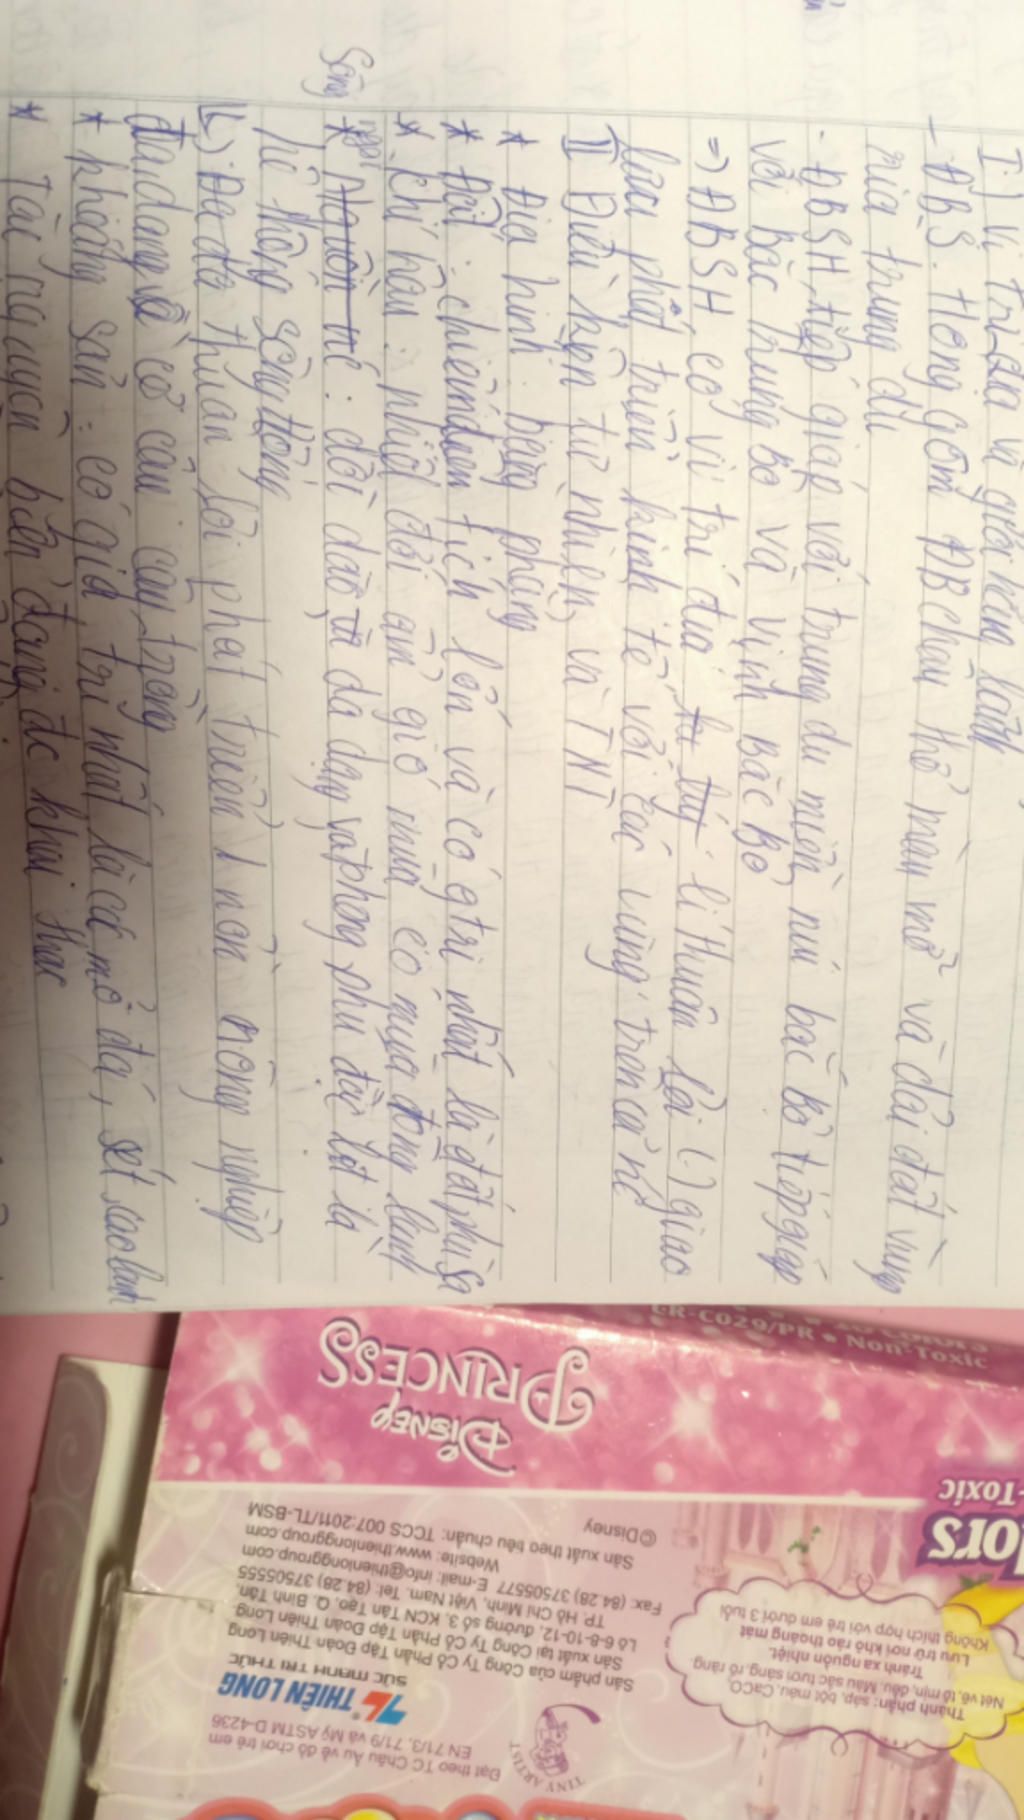 I) Vị trí địa lí giới hạn lãnh
- ĐBS. Hồng gồm ĐB châu thổ màu mỡ và dải đất vùng
rìa trung du
- ĐBSH tiếp giáp với trung du miền núi bắc bộ tiếp giáp
với Bắc Trung Bộ và Vịnh Bắc Bộ
=> ĐBSH có vị trí địa lí thuận lợi (.) giao
lưu phát triển kinh tế với các vùng trên cả nc
II Điều kiện tự nhiên và TNTT
* Địa hình bằng phẳng
* Đất : chiếm diện tích lớn và có gtri nhất là đất phù sa
* Khí hậu : nhiệt đới ẩm gió mùa có mùa đông lạnh
Sông ngòi
* Nguồn nc : dồi dào đa dạng và phong phú đặc biệt là
hệ thống sông Hồng
L) Đã đa thuận lợi phát triển 1 nền nông nghiệp
đa dạng về cơ cấu cây trồng
* khoáng sản : có giá trị nhất là các mỏ đá, sét, cao lanh
* Tài nguyên biển đang đc khai thác
CR-C029/PR • Non-Toxic
DISNEY
PRINCESS
-Toxic
lors
©Disney
Sản xuất theo tiêu chuẩn: TCCS 007:2011/TL-BSM
Website: www.thienlonggroup.com
Fax: (84.28) 37505577 E-mail: info@thienlonggroup.com
TP. Hồ Chí Minh, Việt Nam. Tel: (84.28) 37505555
Lô 6-8-10-12, đường số 3, KCN Tân Tạo, Q. Bình Tân,
Sản xuất tại Công Ty Cổ Phần Tập Đoàn Thiên Long
Sản phẩm của Công Ty Cổ Phần Tập Đoàn Thiên Long
SỨC MẠNH TRI THỨC
THIÊN LONG
EN 71/3, 71/9 và Mỹ ASTM D-4236
Đạt theo TC Châu Âu về đồ chơi trẻ em
TINY ARTIST
Thành phần: sáp, bột màu, CaCO₃
Nét vẽ, tô mịn, đều. Màu sắc tươi sáng, rõ ràng.
Tránh xa nguồn nhiệt.
Lưu trữ nơi khô ráo thoáng mát
Không thích hợp với trẻ em dưới 3 tuổi